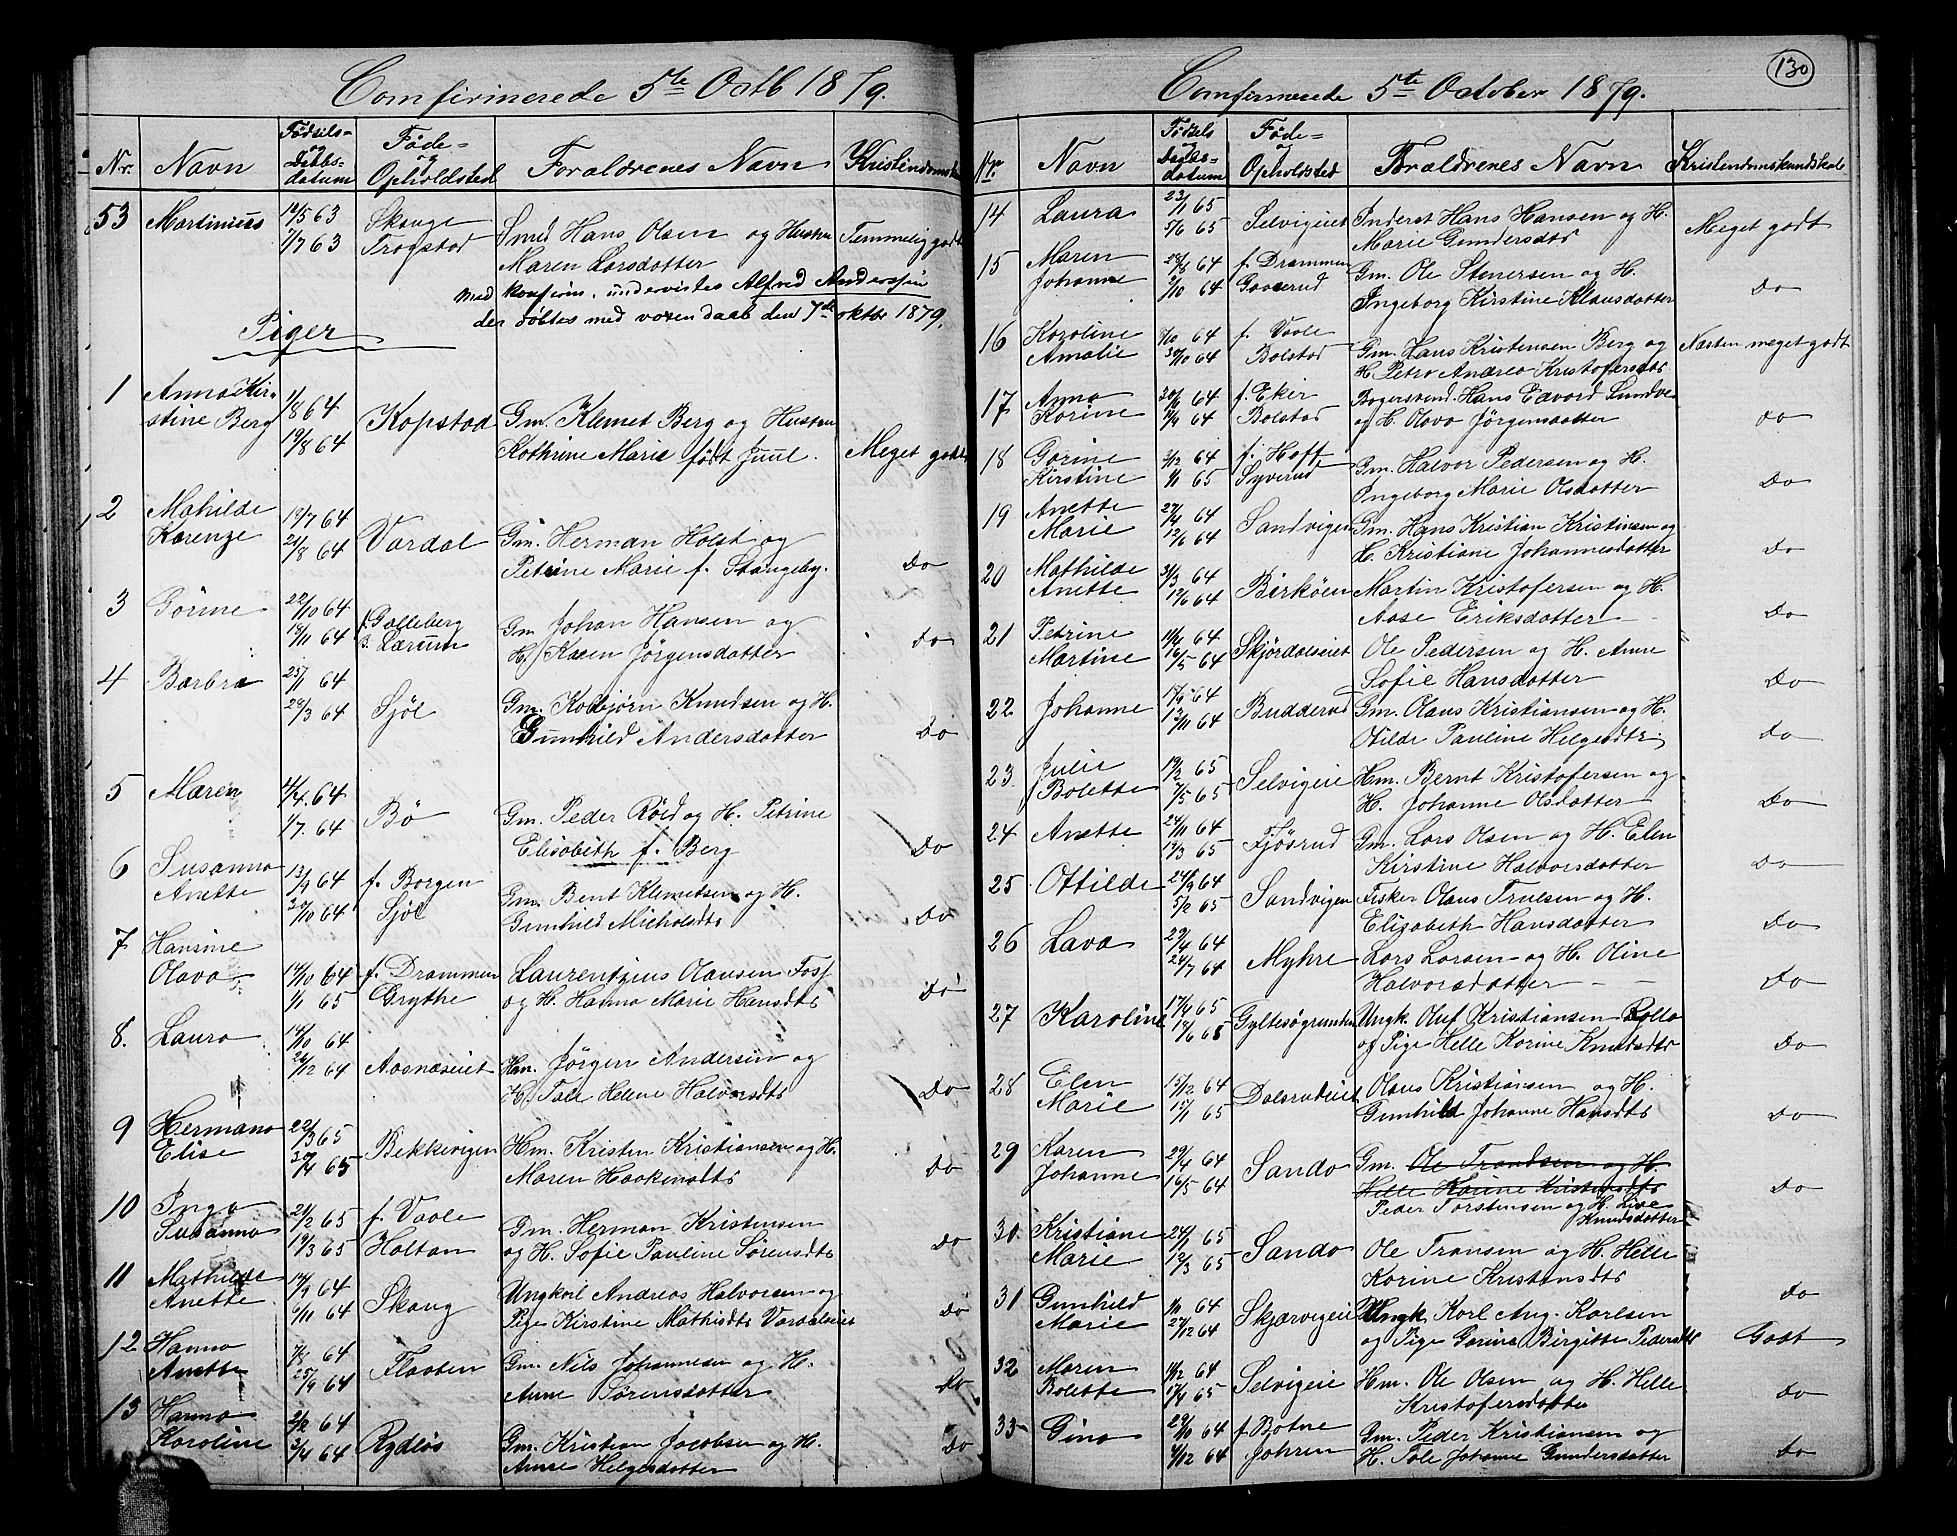 Comfirmerede 5te Octb 1879.
Nr. Navn Fødsels- og Daabs- datum Føde- og Opholdsted Forældrenes Navn Kristendomsk
53 Martinius 12/5 63 Skouge Smed Hans Olsen og Hustru Temmelig godt
7/7 63 Trogstad Maren Larsdatter
Med konfirm. undervistes Alfred Anderssen
der døbtes med voxen daab den 7de oktbr 1879.
Piger
1 Anna Kir- 1/8 64 Kopstad Gm. Klemet Berg og Hustru Meget godt
stine Berg 19/8 64 Kathrine Marie født Juul.
2 Mathilde 19/7 64 Vardal Gm. Herman Holst og
Karenze 21/8 64 Petrine Marie f. Stangeby. Do
3 Gorine 22/10 64 f. Galleberg Gm Johan Hansen og
19/11 64 Lærum H. Karen Jörgensdatter Do
4 Barbra 25/1 64 Sjöl Gm. Kolbjørn Knudsen og H.
29/3 64 Gunhild Andersdatter Do
5 Maren 4/4 64 Bö Gm. Peder Röed og H. Petrine
1/7 64 Elisabeth f. Berg Do
6 Susanna 13/9 64 f. Borgen Gm. Bent Klemetsen og H.
Anette 30/10 64 Sjöl Gunhild Micholsdtr Do
7 Hansine 14/10 64 f. Drammen Laurentzius Olausen Foss
Olava 1/1 65 Grythe og H. Hanna Marie Hansdtr Do
8. Laura 14/10 64 Aasnæseiet Hm. Jörgen Andersen og
26/12 64 H. Tale Helene Halvorsdtr Do
9 Hermana 22/3 65 Bekkevigen Hm. Kristen Kristiansen og H.
Elise 30/4 65 Maren Haakensdtr Do
10 Inga 21/2 65 f. Vaale Gm. Herman Kristensen
Susanna 19/3 65 Holtan og H. Sofie Pauline Sörensdtr Do
11 Mathilde 14/9 64 Skaug Ungkarl Andreas Halvorsen og
Anette 6/11 64 Pige Kirstine Mathisdtr Vardalseiet Do
12 Hanna 7/8 64 Flaaten Gm. Nils Johannesen og H.
Anette 25/9 64 Anne Sörensdatter Do
13 Hanna 2/2 64 Rydløs Gm. Kristian Jacobsen og H.
Karoline 3/4 64 Anne Helgesdatter Do
130
Comfirmerede 5te October 1879.
Nr. Navn Fødsels og Daabs- datum Føde- og Opholdsted Forældrenes Navn Kristendomskundskab
14 Laura 23/1 65 Selvigeiet Inderst Hans Hansen og H. Meget godt
5/6 65 Marie Gundersdtr
15 Maren 28/8 64 f. Drammen Gm. Ole Stenersen og H.
Johanne 9/10 64 Gaaserud Ingeborg Kirstine Klausdatter Do
16 Karoline 9/10 64 f. Vaale Gm. Hans Kristensen Berg og Næsten meget godt
Amalie 30/10 64 Bolstad H. Petra Andrea Kristofersdtr
17 Anna 20/6 64 f. Eker Bagersvend Hans Edvard Lundve
Karine 9/9 64 Bolstad og H. Olava Jörgensdatter Do
18 Gorine 3/12 64 f. Hoff Gm. Halvor Pedersen og H.
Kirstine 1/1 65 Syverud Ingeborg Marie Olsdatter Do
19 Anette 27/4 64 Sandvigen Gm. Hans Kristian Kristinsen og
Marie 12/6 64 H. Kristiane Johannesdatter Do
20 Mathilde 31/3 64 Birköen Martin Kristofersen og H.
Anette 12/6 64 Aase Eriksdatter Do
21 Petrine 14/4 64 Skjördalseiet Ole Pedersen og H. Anne
Martine 16/5 64 Sofie Hansdatter Do
22 Johanne 18/9 64 Budderud Gm. Olaus Kristiansen og H.
13/11 64 Otilde Pauline Helgesdtr Do
23. Julie 19/2 65 Selvigeie Hm. Bernt Kristofersen og
Bolette 7/5 65 H. Johanne Olsdatter Do
24 Anette 24/11 64 Fjösrud Gm. Lars Olsen og H. Elen
12/3 65 Kirstine Halvorsdatter Do
25 Ottilde 24/9 64 Sandvigen Fisker Olaus Trulsen og H.
5/2 65 Elisabeth Hansdatter Do
26 Lava 29/4 64 Myhre Lars Larsen og H. Oline
24/7 64 Halvorsdatter Do
27 Karoline 17/4 65 Gyltesøgrunden Ungk. Oluf Kristiansen Rollo
18/6 65 og Pige Helle Karine Knudsdtr Do
28 Elen 15/12 64 Dalsrudeiet Olaus Kristiansen og H.
Marie 15/1 65 Gunhild Johanne Hansdtr Do
29 Karen 29/4 64 Sando Gm. Ole Trandsen og H.
Johanne 16/5 64 Helle Karine Kristensdtr Do
Peder Torstensen og H. Live
Knudsdatter
30. Kristiane 24/1 65 Sando Ole Transen og H. Helle
Marie 12/3 65 Karine Kristensdtr Do
31 Gunhild 1/10 64 Skjærvigeie Ungk. Karl Aug. Karlsen
Marie 27/12 64 og Pige Gorina Birgitte Pedersdtr Godt
32 Maren 14/12 64 Selvigeie Hm. Ole Olsen og H. Helle
Bolette 17/4 65 Kristofersdatter Do
33 Gina 29/10 64 f. Botne Gm. Peder Kristiansen og
4/12 64 Johren H. Tale Johanne Gundersdatter Do